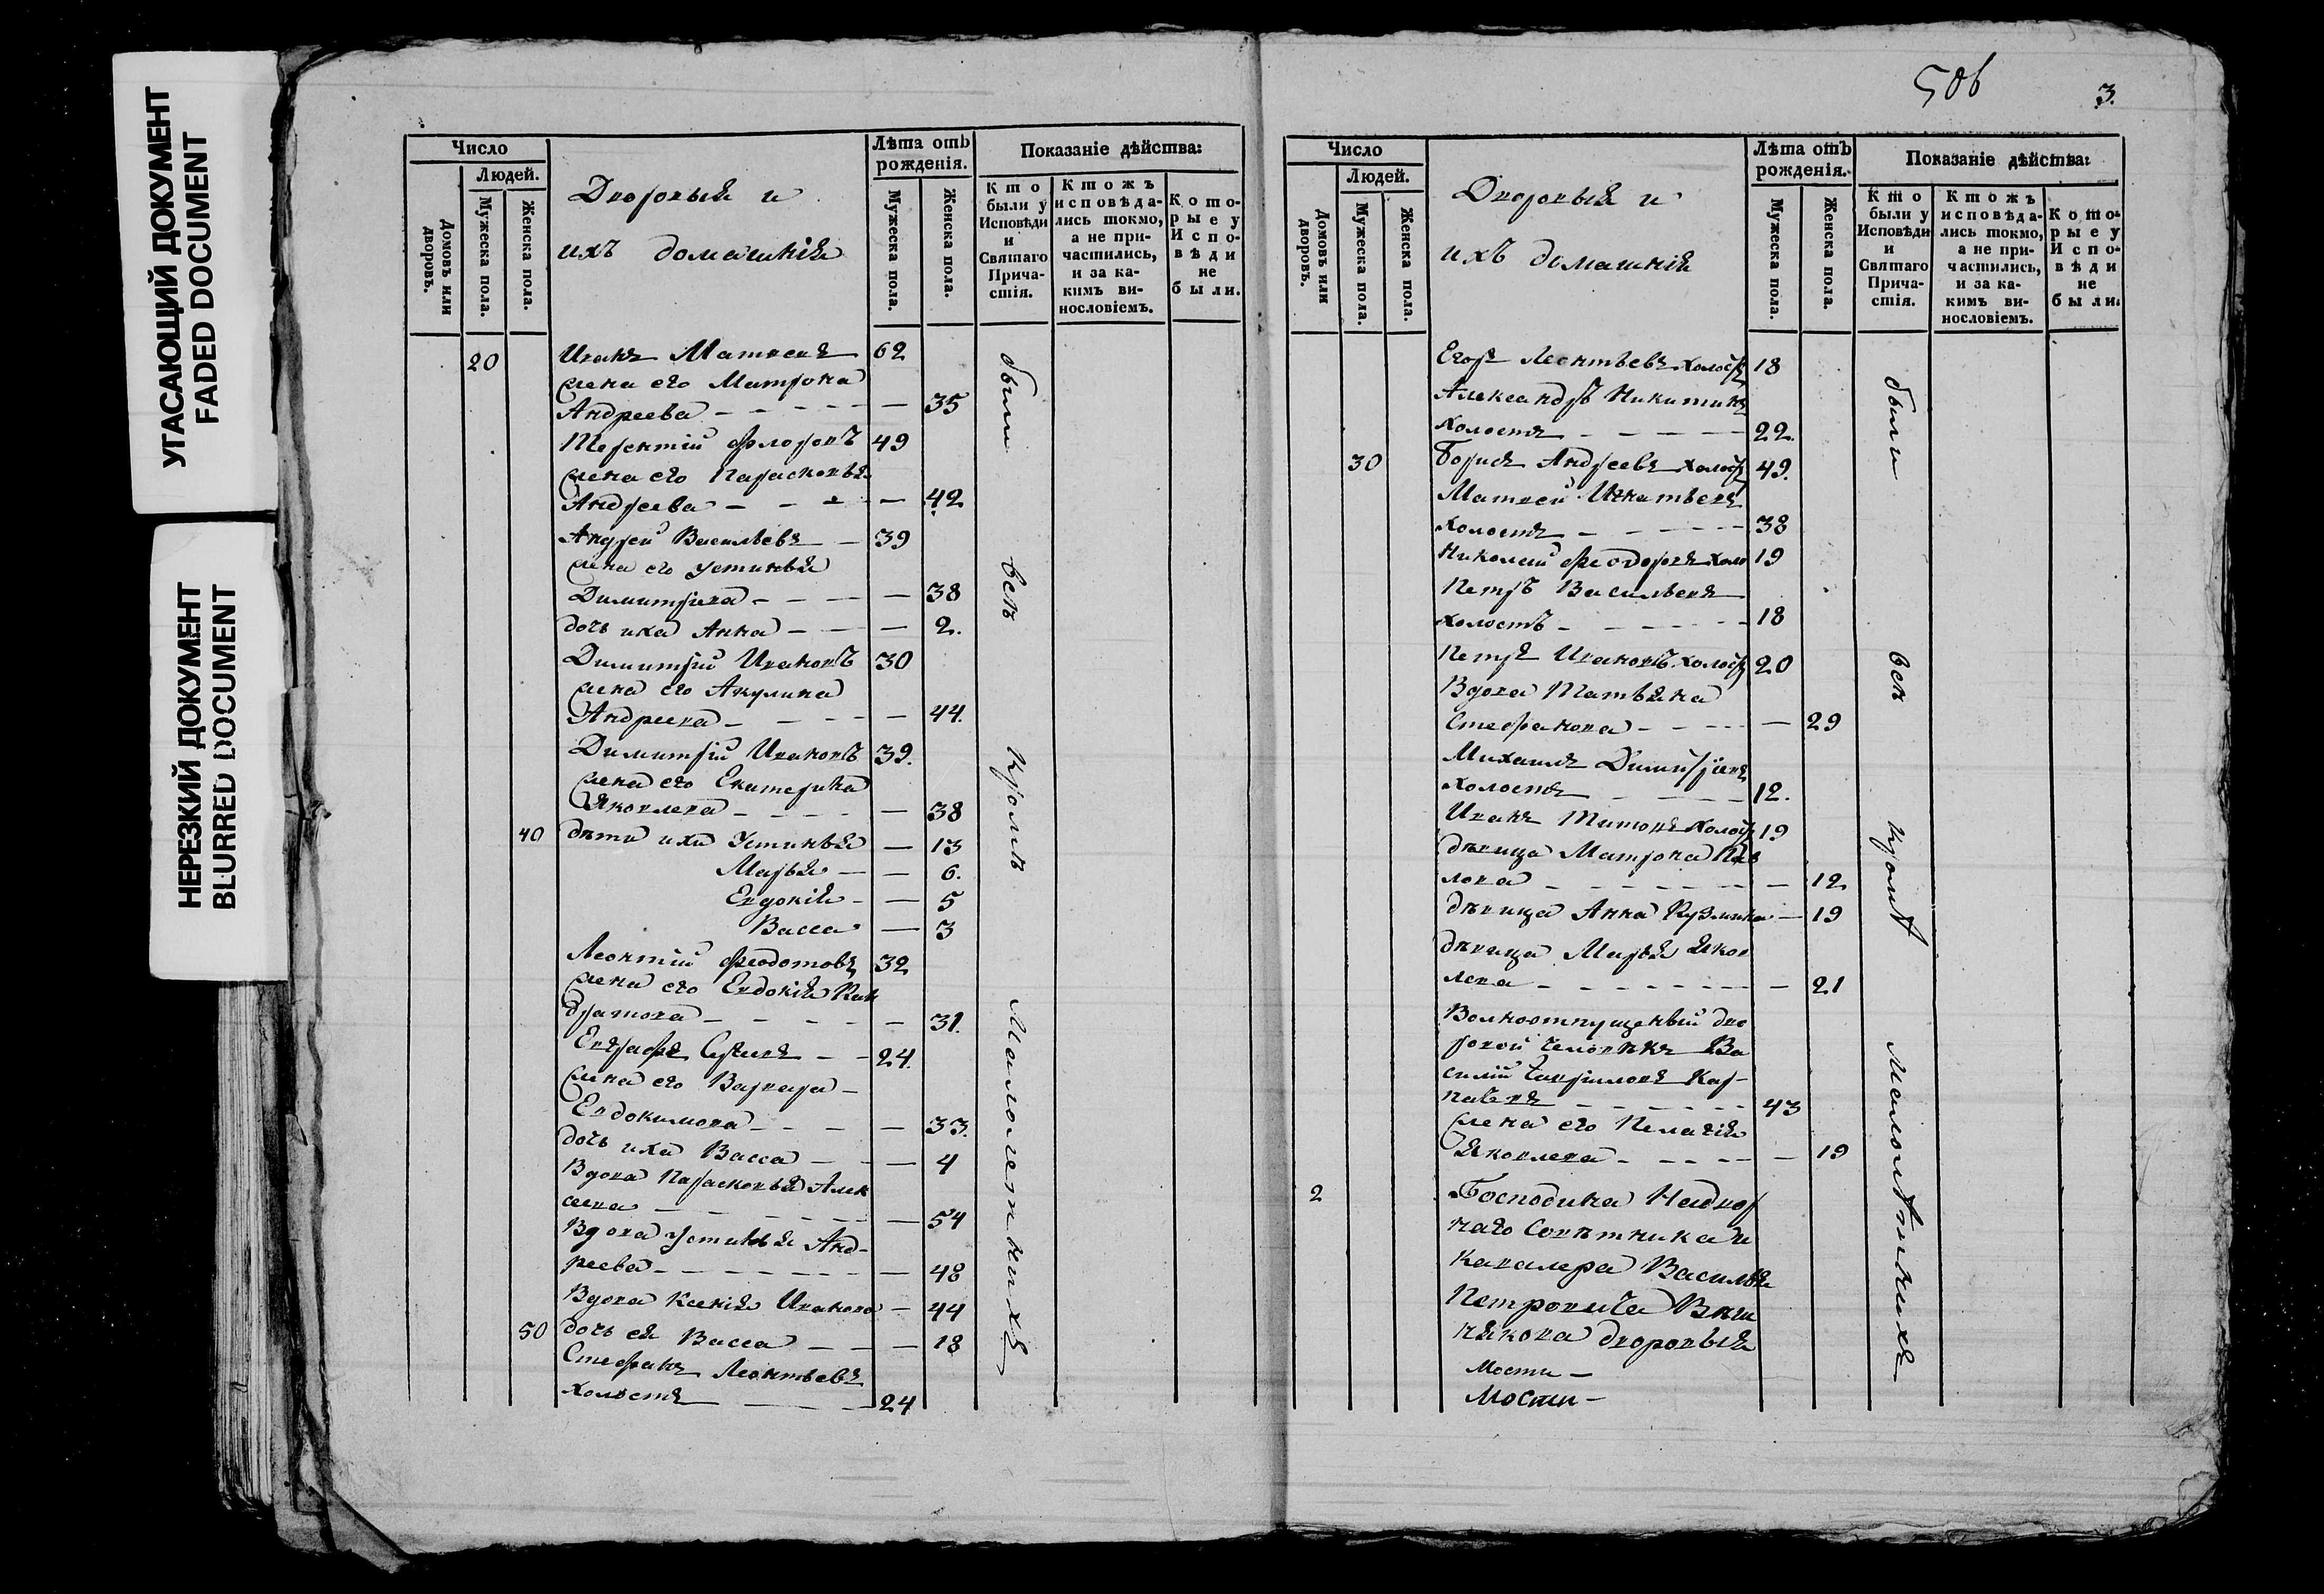 УГАСАЮЩИЙ ДОКУМЕНТ
FADED DOCUMENT
НЕРЕЗКИЙ ДОКУМЕНТ
BLURRED DOCUMENT
Число
Людей.
Домовъ или дворовъ.
Мужеска пола.
Женска пола.
Дворовыя и
ихъ домашнія
Лѣта отъ
рожденія.
Мужеска пола.
Женска пола.
Показаніе дѣйства:
Кто
были у
Исповѣди
и
Святаго
Прича-
стія.
Ктожъ
исповѣда-
лись токмо,
а не при-
частились,
и за ка-
кимъ ви-
нословіемъ.
Кото-
рые у
Испо-
вѣди
не
были.
20 Иванъ Матвеевъ 62
жена его Матрона
Андреева — 35
Терентій Флоровъ 49
жена его Парасковья
Андреева — 42
Андрей Васильевъ — 39
жена его Устинья
Димитриева — 38
дочь ихъ Анна — 2.
Димитрій Ивановъ 30
жена его Акулина
Андреева — 44.
Димитрій Ивановъ 39.
жена его Екатерина
Яковлева — 38
40 дѣти ихъ Устинья — 13
Марья — 6.
Евдокія — 5
Васса — 3
Леонтій Феодотовъ 32
жена его Евдокія Кон
дратова — 31.
Евграфъ — 24.
жена его Варвара —
Евдокимова — 33.
дочь ихъ Васса — 4
Вдова Парасковья Алек
сеева — 54
Вдова Устинья Анд-
реева — 48
Вдова Ксенія Иванова — 44
50 дочь ея Васса — 18
Стефанъ Леонтьевъ
холостъ — 24
были
всѣ
кромѣ
Малолетнихъ
506 3.
Число
Людей.
Домовъ или дворовъ.
Мужеска пола.
Женска пола.
Дворовыя и
ихъ домашнія
Лѣта отъ
рожденія.
Мужеска пола.
Женска пола.
Показаніе дѣйства:
Кто
были у
Исповѣди
и
Святаго
Прича-
стія.
Ктожъ
исповѣда-
лись токмо,
а не при-
частились,
и за ка-
кимъ ви-
нословіемъ.
Кото-
рые у
Испо-
вѣди
не
были.
Егоръ Леонтьевъ холос 18
Александръ Никитинъ
холостъ — 22.
30 Борисъ Андреевъ холос 49.
Матвей Игнатьевъ
холостъ — 38
Николай Феодоровъ холо 19
Петръ Васильевъ
холостъ — 18
Петръ Ивановъ холос 20
Вдова Татьяна
Стефанова — 29
Михаилъ Димитріевъ
холостъ — 12.
Иванъ Титовъ холос 19
дѣвица Матрона Пав
лова — 12
дѣвица Анна Кузмина — 19
дѣвица Марья Яков
лева — 21
Волноотпущенный дво
ровой человѣкъ Ва
силій Гавриловъ Кар-
пасевъ — 43
жена его Пелагія
Яковлева — 19
2 Господина Надвор
наго Совѣтника и
Кавалера Василья
Петровича Виш
някова дворовыя
Мости —
Мости —
были
всѣ
кромѣ
Малолѣтнихъ